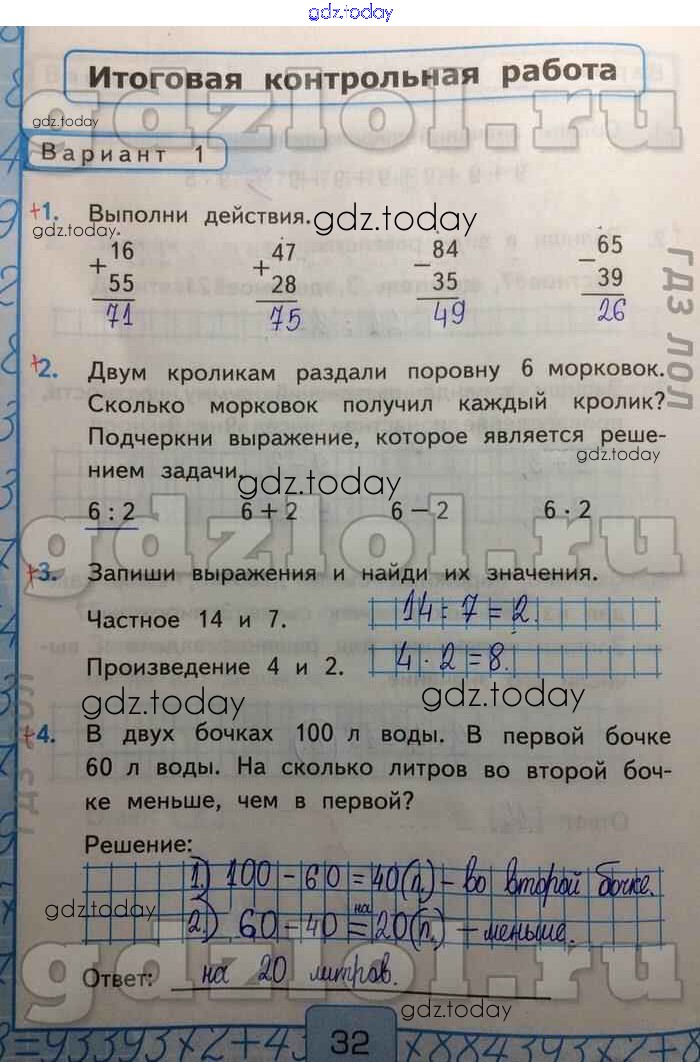 gdz.today
Итоговая контрольная работа
gdz.today
Вариант 1
+1. Выполни действия.
gdz.today
gdz.today
+ 16 + 47 − 84 − 65
55 28 35 39
71 75 49 26
+2. Двум кроликам раздали поровну 6 морковок.
Сколько морковок получил каждый кролик?
Подчеркни выражение, которое является реше-
нием задачи.
gdz.today
gdz.today
6 : 2 6 + 2 6 − 2 6 · 2
gdzlol.ru
+3. Запиши выражения и найди их значения.
Частное 14 и 7. 14 : 7 = 2.
Произведение 4 и 2. 4 · 2 = 8.
gdz.today gdz.today
+4. В двух бочках 100 л воды. В первой бочке
60 л воды. На сколько литров во второй боч-
ке меньше, чем в первой?
Решение:
1) 100 − 60 = 40 (л.) − во второй бочке.
gdz.today
2) 60 − 40 = на 20 (л.) − меньше.
Ответ: на 20 литров.
gdzlol.ru
gdz.today
32
gdzlol.ru
ГДЗ ЛОЛ
ГДЗ ЛОЛ